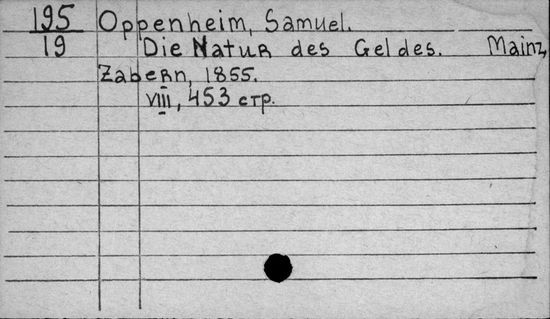 195 Oppenheim, Samuel.
19 Die Natur des Geldes. Mainz,
Zabern, 1855.
VIII, 453 стр.